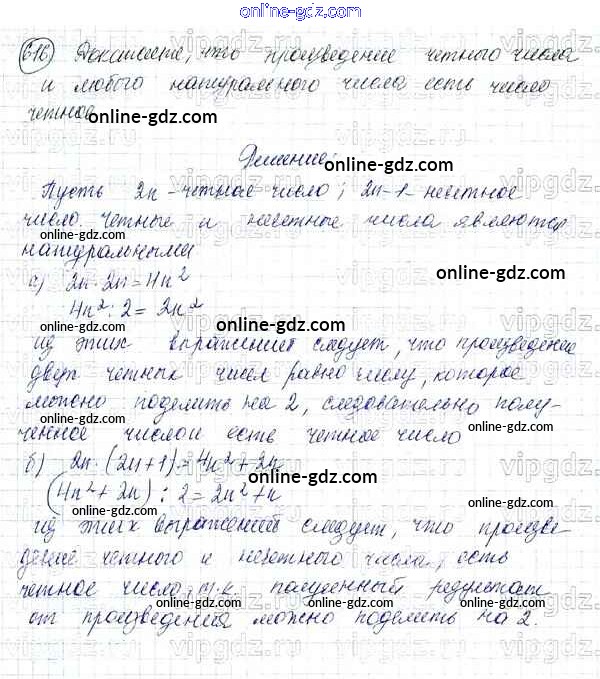 online-gdz.com
616 Докажите, что произведение четного числа
и любого натурального числа есть число
четное
online-gdz.com
Решение:
online-gdz.com
Пусть 2n - четное число; 2n-1 - нечетное
число. Четные и нечетные числа являются
online-gdz.com
натуральными
online-gdz.com
а) 2n · 2n = 4n²
4n² : 2 = 2n²
online-gdz.com
online-gdz.com
из этих выражений следует, что произведение
двух четных чисел равно числу, которое
online-gdz.com
можно поделить на 2, следовательно полу-
online-gdz.com
ченное числом есть четное число
online-gdz.com
б) 2n · (2n+1) = 4n² + 2n
(4n² + 2n) : 2 = 2n² + n
online-gdz.com
из этих выражений следует, что произве
дение четного и нечетного числа, есть
online-gdz.com
четное число, т.к. полученный результат
online-gdz.com
от произведения можно поделить на 2.
online-gdz.com
vipgdz.ru